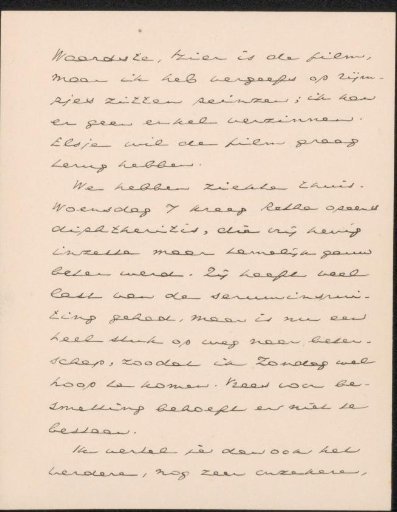 Waardste, hier is de film,
maar ik heb vergeefs op rijm-
pjes zitten peinzen; ik kon
er geen enkel verzinnen.
Elsje wil de film graag
terug hebben.
We hebben ziekte thuis.
Woensdag 7 kreeg opeens
diphtheritis, die vrij hevig
inzette maar tamelijk gauw
beter werd. Zij heeft veel
last van de seruminspui-
ting gehad, maar is nu een
heel stuk op weg naar beter-
schap, zoodat ik Zondag wel
hoop te komen. Vrees voor be-
smetting behoeft er niet te
bestaan.
Ik vertel je dan ook het
verdere, nog zeer onzekere,